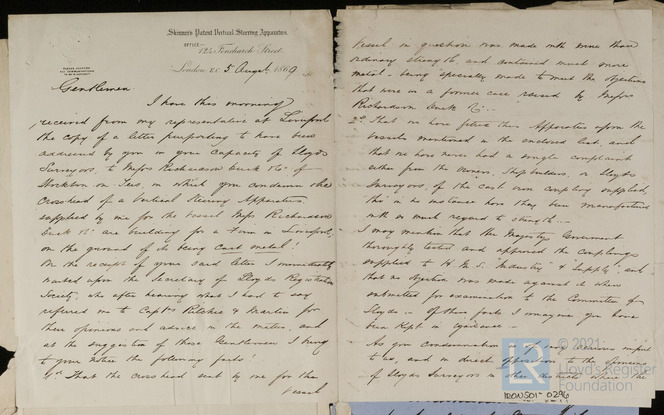 Skinner's Patent Vertical Steering Apparatus.
OFFICE
124 Fenchurch Street,
London E.C. 5 August 1869
Gentlemen
I have this morning
received from my representative at Liverpool
the copy of a letter purporting to have been
addressed by you in your capacity of Lloyds
Surveyors, to Messrs Richardson Duck & Co of
Stockton on Tees, in which you condemn the
Crosshead of a Vertical Steering Apparatus
supplied by me for the vessel Messrs Richardson
Duck & Co are building for a Firm in Liverpool,
on the ground of its being cast metal!
On the receipt of your said letter I immediately
waited upon the Secretary of Lloyds Register
Society, who after hearing what I had to say
referred me to Captns Ritchie & Martin for
their opinions and advice in the matter, and
at the suggestion of those Gentlemen I beg
to your notice the following facts!
1st That the crosshead sent by me for the
vessel
Vessel in question was made with more than
ordinary strength and contained much more
metal - being specially made to meet the objections
that were in a former case raised by Messrs
Richardson Duck & Co.
2d That we have fitted this Apparatus upon the
vessels mentioned in the enclosed list, and
that we have never had a single complaint
either from the Owners, Shipbuilders, or Lloyds
Surveyors, of the cast iron coupling supplied,
tho' in no instance have they been manufactured
with so much regard to strength.
I may mention that Her Majestys Government
thoroughly tested and approved the couplings
supplied to H.M.S. "Industry" & "Supply" and
that no objection was made against it when
submitted for examination to the Committee for
Lloyds - of their facts I imagine you have
been kept in ignorance -
As your condemnation is of very serious import
to us, and in direct opposition to the opinions
of Lloyds Surveyors in other districts where the
© 2021
Lloyd's Register
Foundation
LR
IRON501-0296